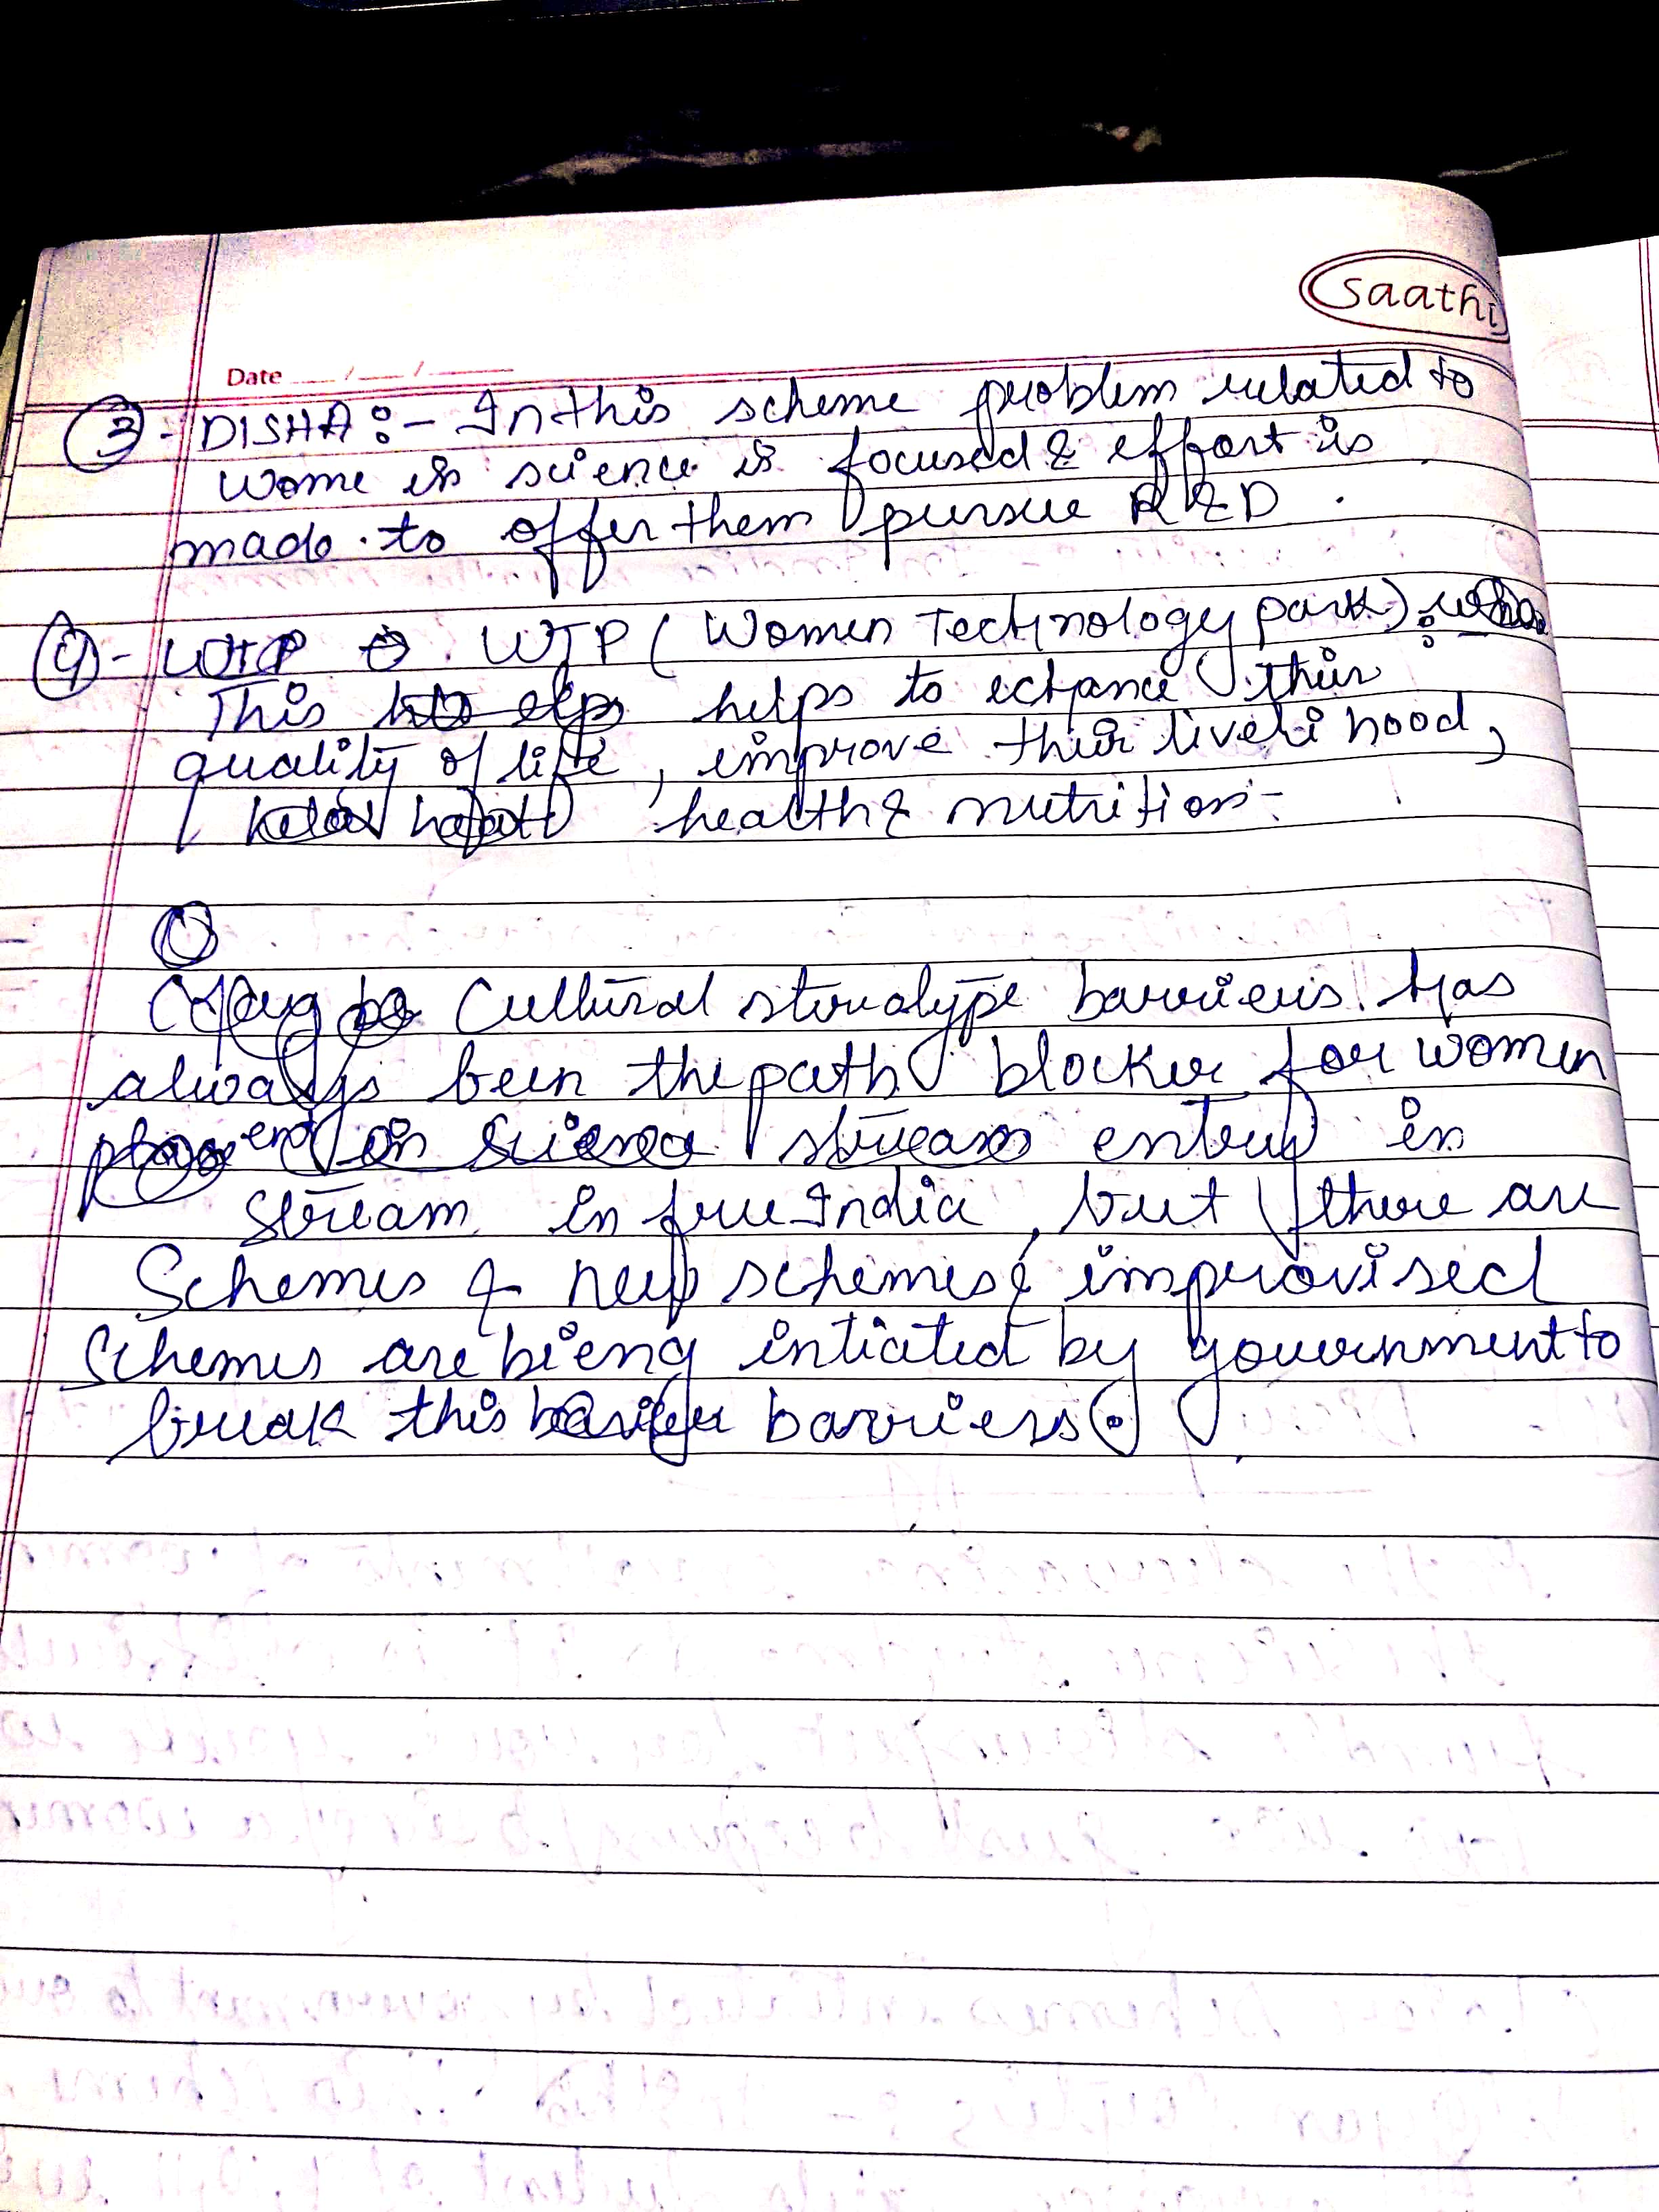 saathi
Date __/__/____
③- DISHA :- In this scheme problem related to
wome in science is focused & effort is
made to offer them pursue R&D .
④- WTP (Women Technology park) :-
This helps to echance their
quality of life, improve their livelihood,
health & nutrition.
Cultural sterotype barriers. Has
always been the path blocker for women
entry in
stream in free India, but there are
Schemes & new schemes & improvised
Schemes are bieng intiated by government to
break this barriers.